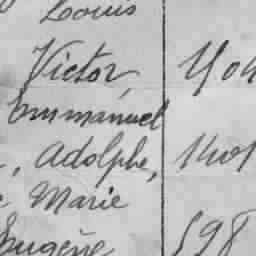 Louis
Victor,
Emmanuel
, Adolphe,
Marie
Eugène 598